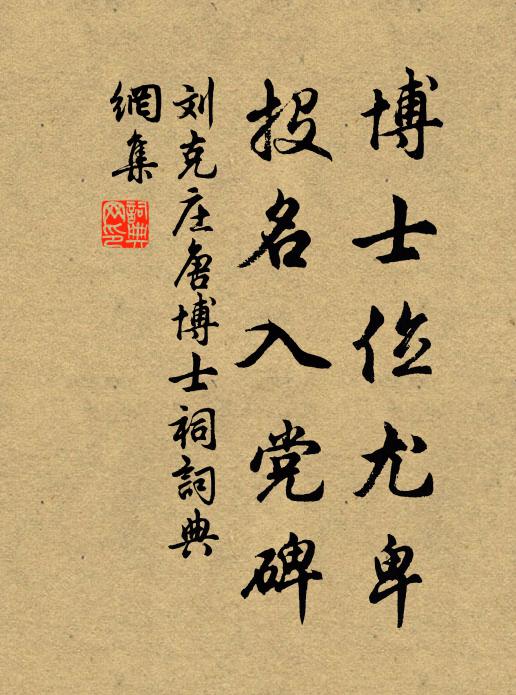 博士位尤卑
投名入党碑
刘克庄唐博士祠詞典
網集
詞典网印